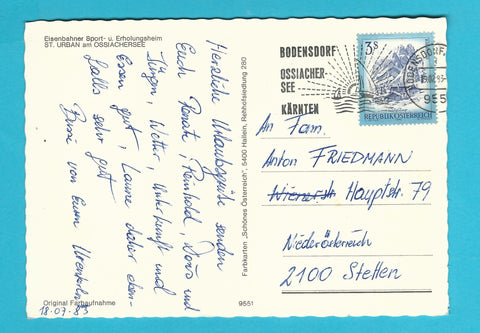 Eisenbahner Sport- u. Erholungsheim
ST. URBAN am OSSIACHERSEE
Herzliche Urlaubsgrüße senden
Euch Renate, Reinhold, Doris und
Jürgen, Wetter, Unterkunft und
Essen gut, Laune daher eben-
falls sehr gut
Bussi von Euren
Original Farbaufnahme
18-07-83
9551
Farbkarten „Schönes Österreich", 5400 Hallein, Rehhofsiedlung 280
BODENSDORF
OSSIACHER-
SEE
KÄRNTEN
3 S
REPUBLIK ÖSTERREICH
955
An Fam.
Anton FRIEDMANN
Wienerstr. Hauptstr. 79
Niederösterreich
2100 Stetten